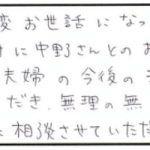 変お世話になっ
に中野さんとのお
夫婦の今後の
だき、無理の無
相談させていただ